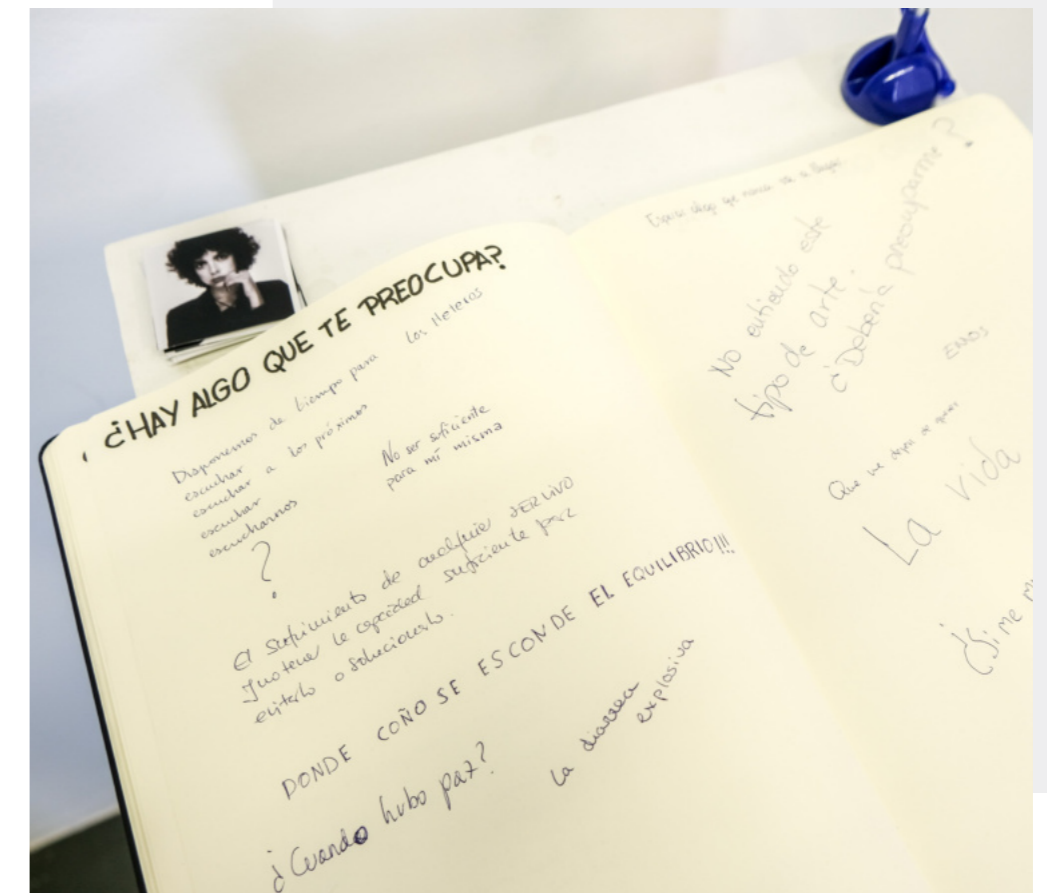 ¿HAY ALGO QUE TE PREOCUPA?
Disponemos de tiempo para
escuchar los ateleros
escuchar a los próximos
escuchar
escucharnos
?
No ser suficiente
para mí misma
El sufrimiento de cualquier SER VIVO
y no tener la capacidad suficiente para
evitarlo o solucionarlo.
DONDE COÑO SE ESCONDE EL EQUILIBRIO!!!
¿Cuando hubo paz?
La diarrea
explosiva
Esperar algo que nunca va a llegar.
No entiendo este
tipo de arte.
¿Debería preocuparme?
Que me dejen de querer
La vida
¿Si me